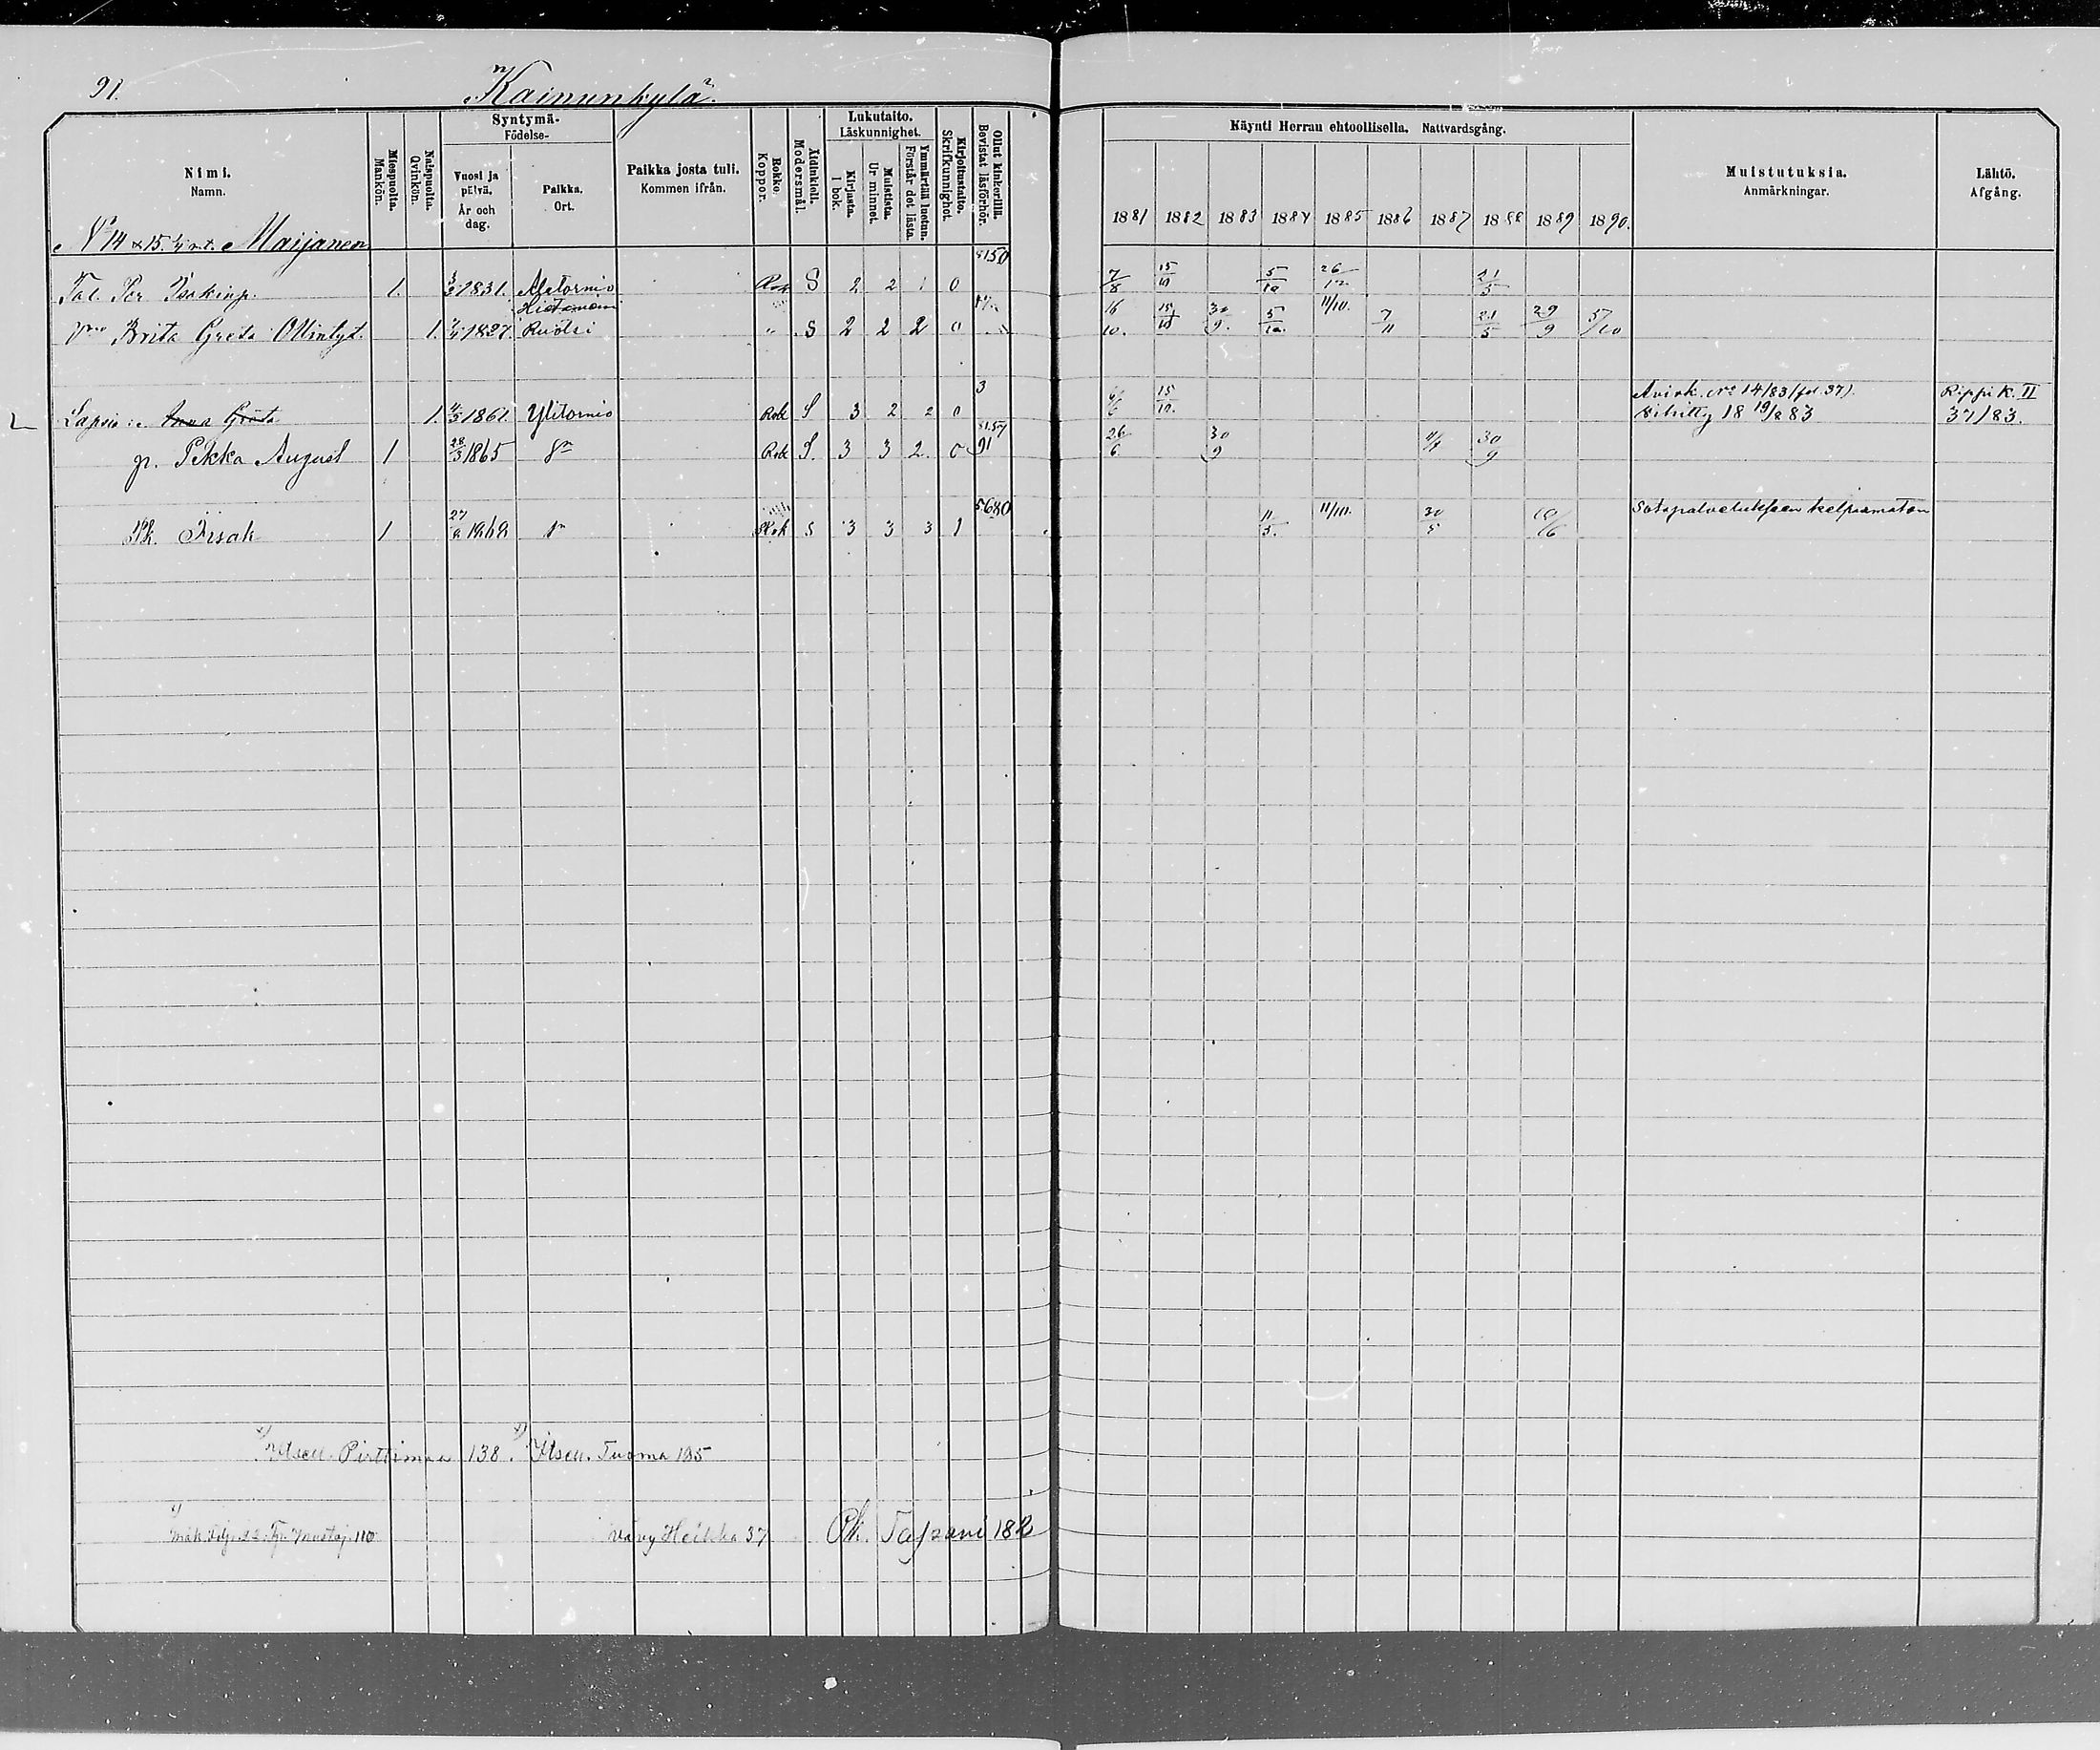 91.
Kainunkylä.
Nimi.
Namn.
Miespuolta.
Mankön.
Naispuolta.
Qvinkön.
Syntymä-
Födelse-
Vuosi ja päivä.
År och dag.
Paikka.
Ort.
Paikka josta tuli.
Kommen ifrån.
Rokko.
Koppor.
Äidinkieli.
Modersmål.
Lukutaito.
Läskunnighet.
Kirjasta.
I bok.
Muistista.
Ur minnet.
Ymmärtää luetun.
Förstår det lästa.
Kirjoitustaito.
Skrifkunnighet.
Ollut kinkerillä.
Bevistat läsförhör.
Käynti Herran ehtoollisella. Nattvardsgång.
1881 1882 1883 1884 1885 1886 1887 1888 1889 1890.
Muistutuksia.
Anmärkningar.
Lähtö.
Afgång.
No 14 & 15. Maijanen
Tal. Per Isakinp. 1. 1831. Alatornio S 2 2 1 0 5150 7/8 15/10 5/10 26/12 21/5
Brita Greta Ollintyt. 1. 1827. Ruotsi " S 2 2 2 0 16/10. 15/10 30/9. 5/10. 11/10. 7/11 21/5 29/9 5/10
Lapsia: Anna Greta 1. 1861. Ylitornio Rok S 3 2 2 0 3 6/6 15/10. Aviok. No 14/83 (fol. 37). Vihitty 18 19/8 83 Rippik. II 37/83.
Pekka August 1 28/3 1865 Rok S. 3 3 2. 0 91 26/6 30/9 30/9
Isak 1 1868 Rok S 3 3 3 1 5680 11/5. 11/10. 20/5 Sotapalvelukseen kelpaamaton
Itsell. Pirttimaa 138. Itsell. Tuoma 195
110 Vävy Heikka 37 Tapani 182